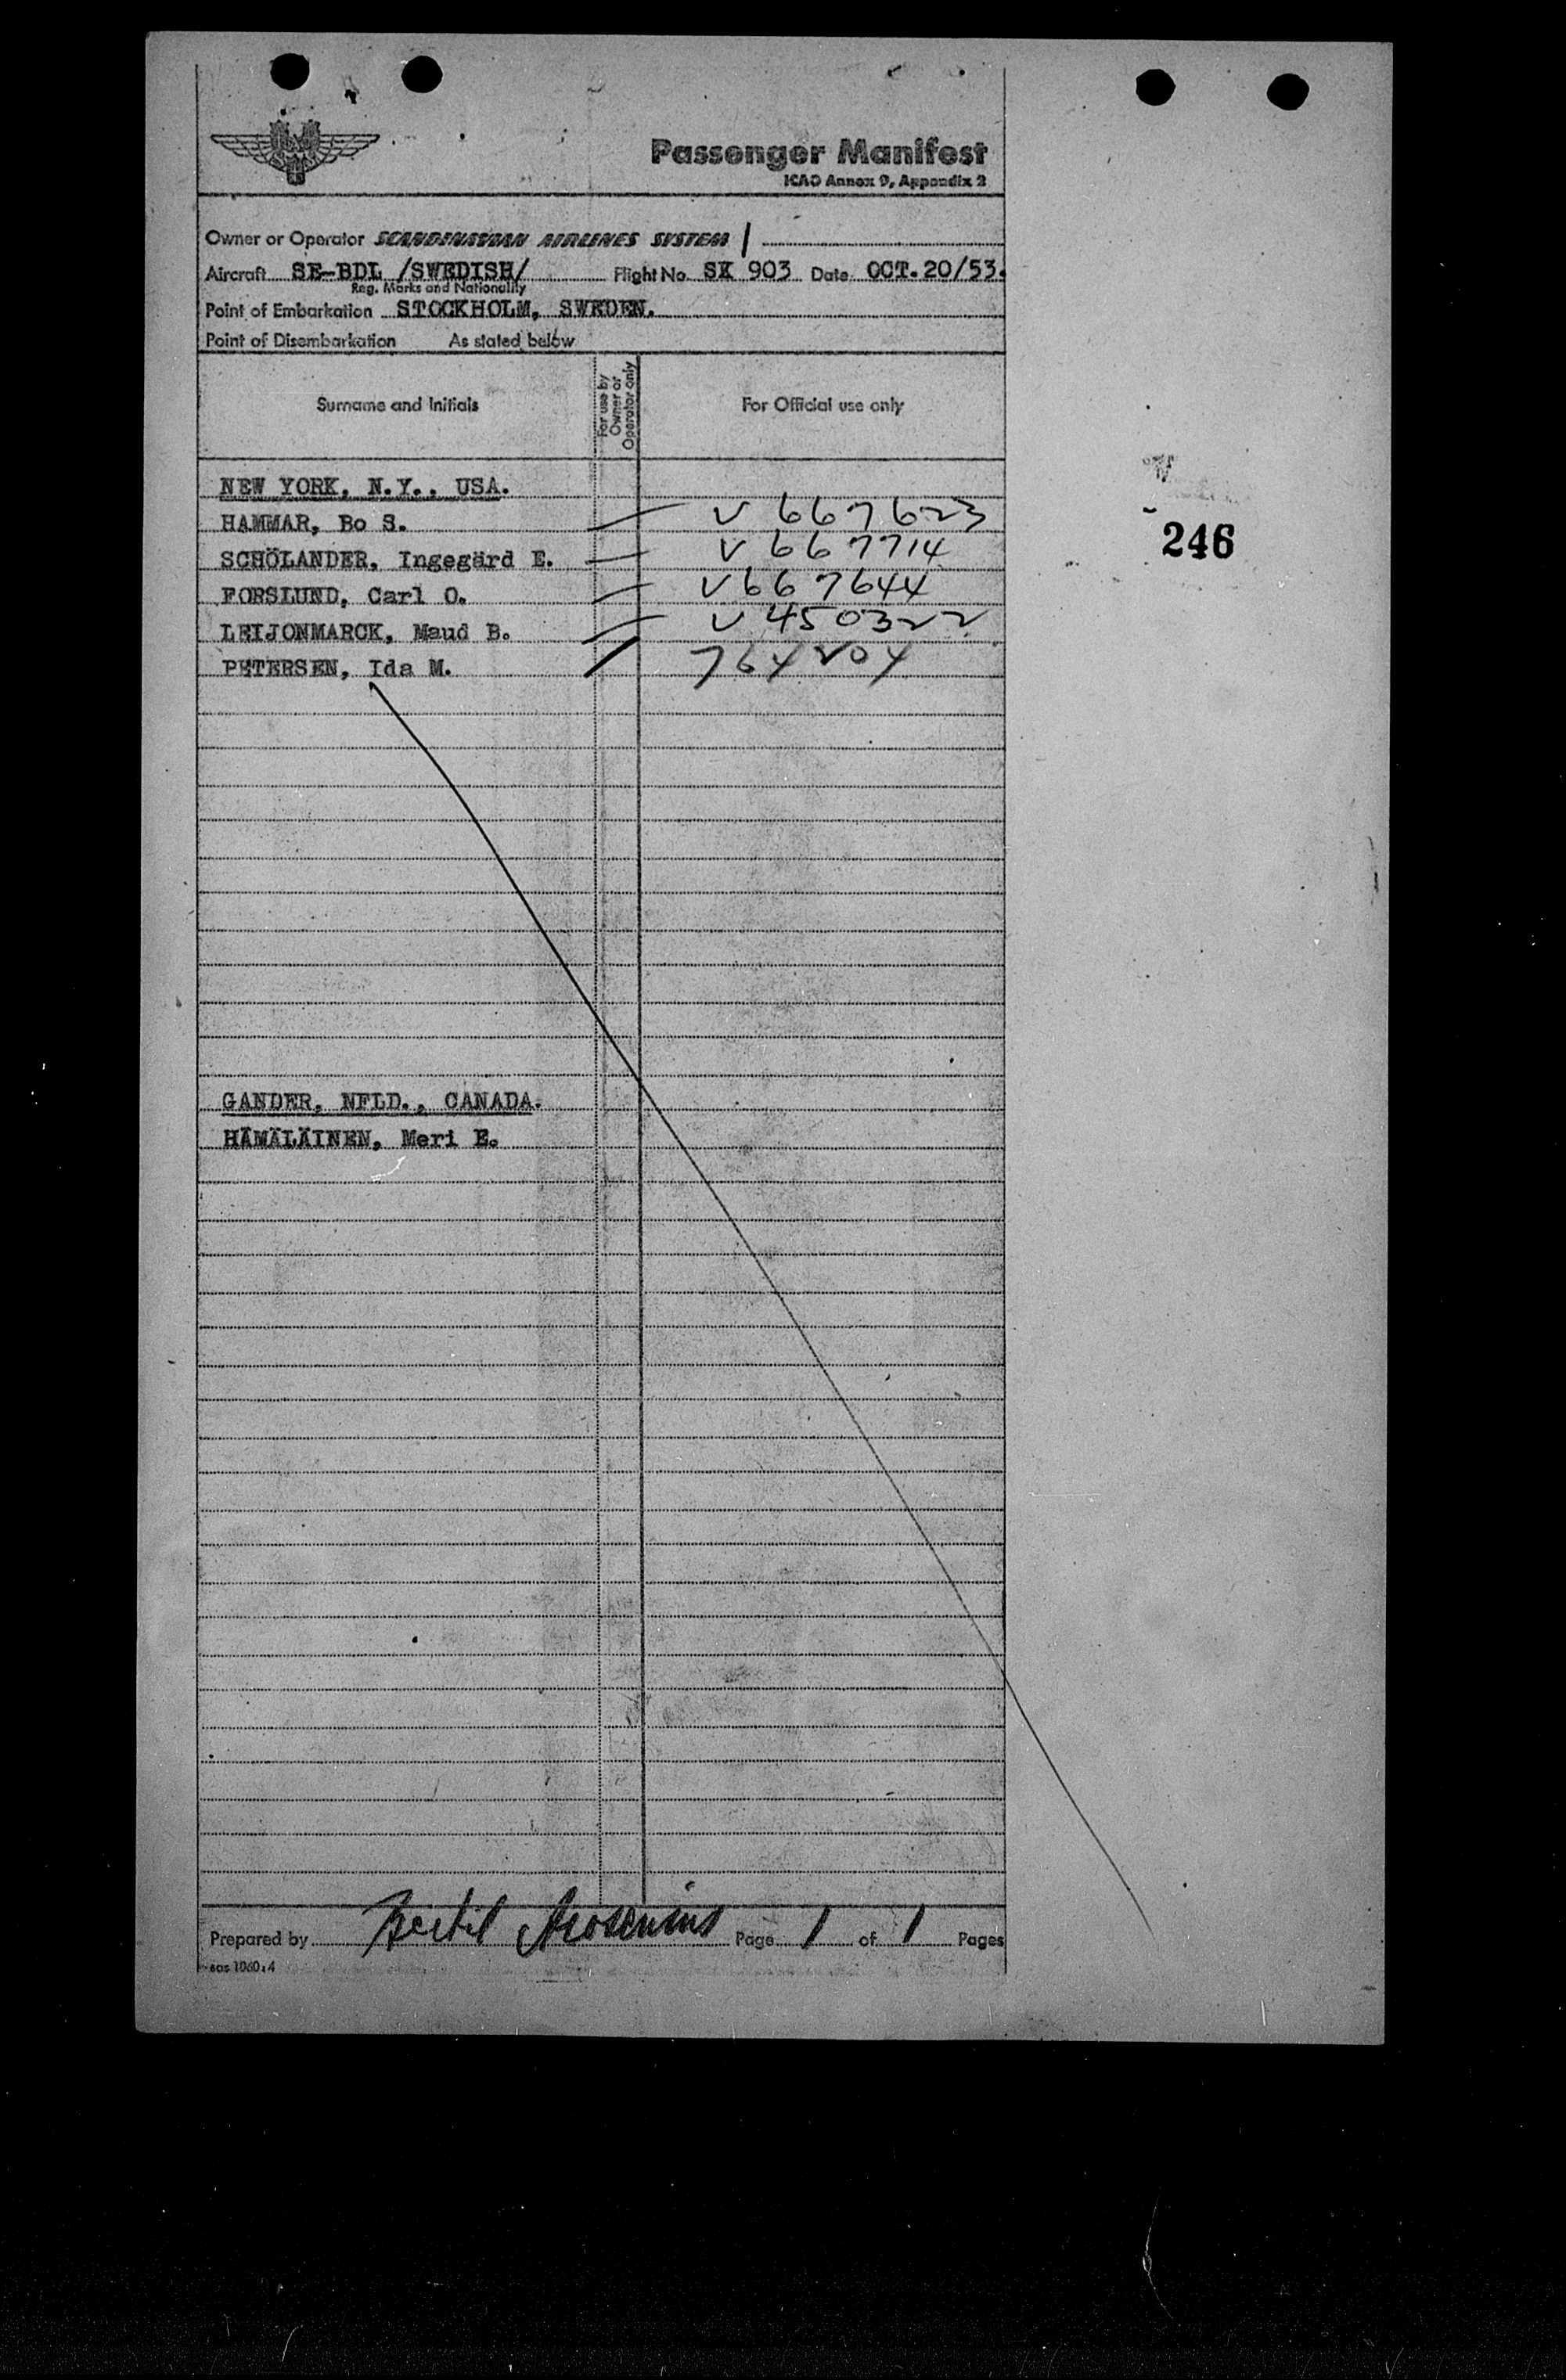 Passenger Manifest
ICAO Annex 9, Appendix 2
Owner or Operator SCANDINAVIAN AIRLINES SYSTEM
Aircraft SE-BDL /SWEDISH/ Flight No. SK 903 Date OCT. 20/53.
Reg. Marks and Nationality
Point of Embarkation STOCKHOLM, SWEDEN.
Point of Disembarkation As stated below
Surname and Initials For use by Owner or Operator only For Official use only
NEW YORK, N.Y., USA.
HAMMAR, Bo S. V 667623
SCHÖLANDER, Ingegärd E. V 667714
246
FORSLUND, Carl O. V667644
LEIJONMARCK, Maud B. V 450322
PETERSEN, Ida M. 764204
GANDER, NFLD., CANADA.
HÄMÄLÄINEN, Meri E.
Prepared by Bertil Page 1 of 1 Pages
sas 1060:4